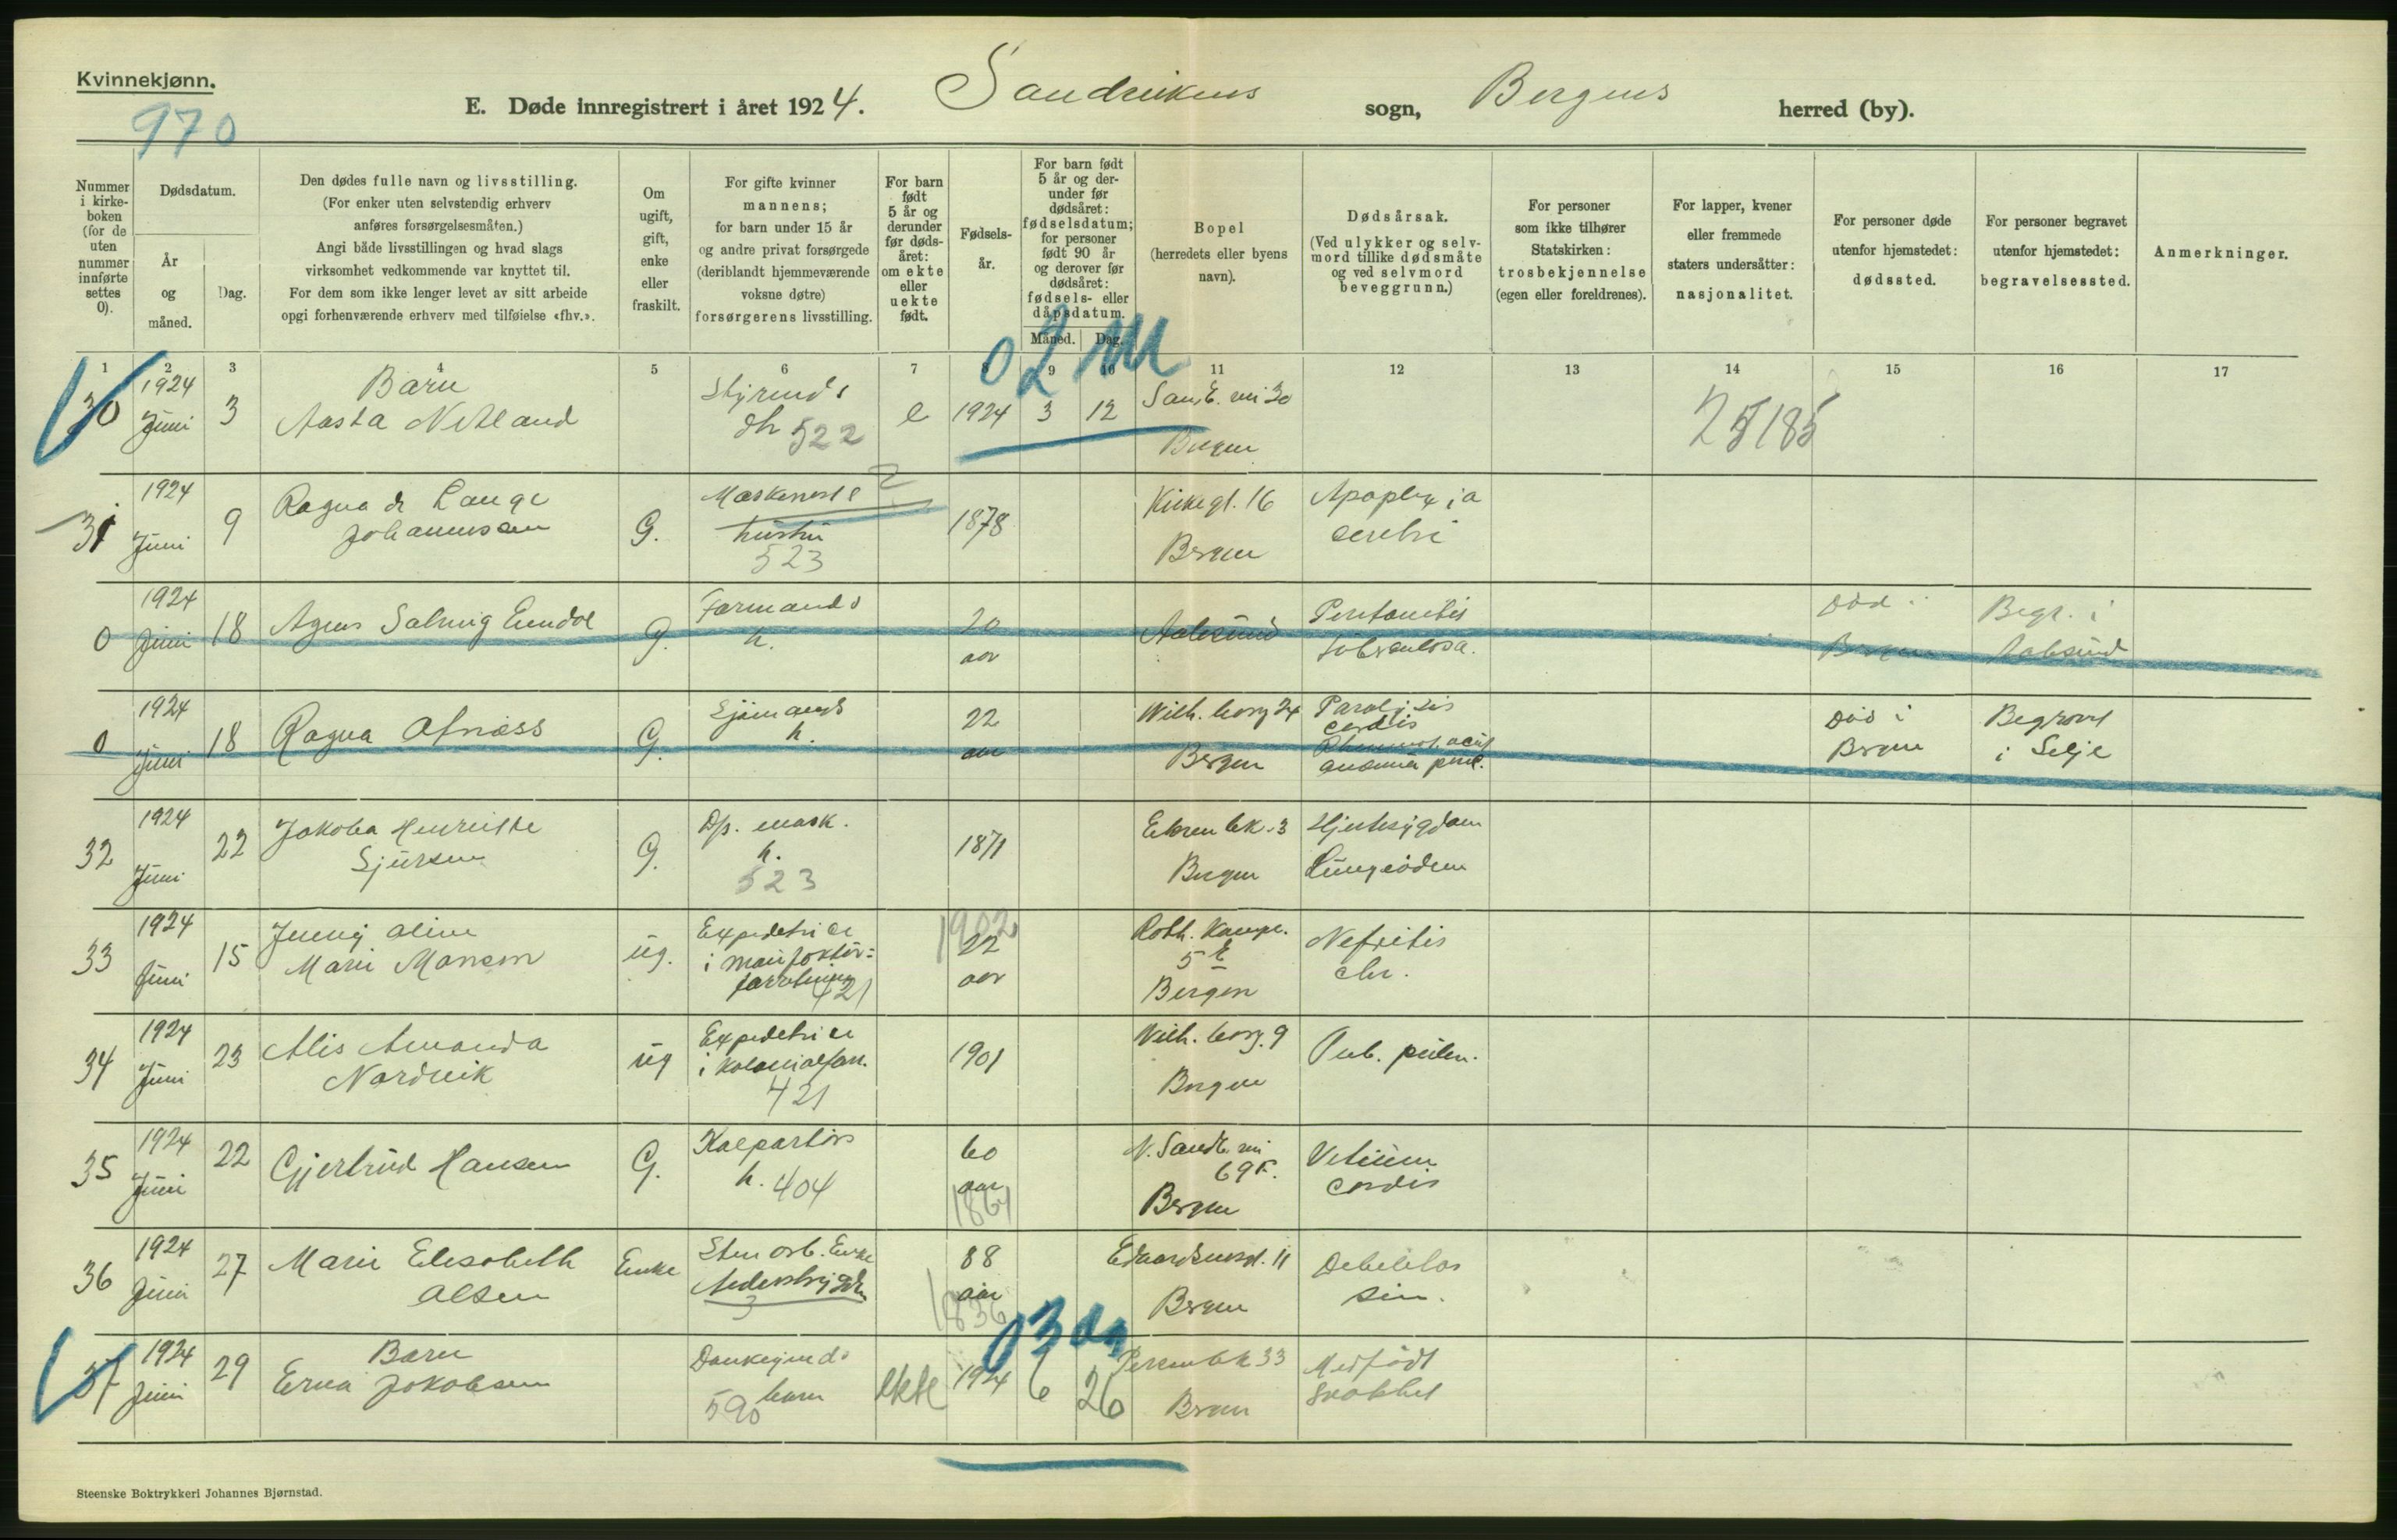 Kvinnekjønn.
970
E. Døde innregistrert i året 1924. Sandvikens sogn, Bergens herred (by).
Nummer i kirke-boken (for de uten nummer innførte settes 0).
Dødsdatum.
År og måned.
Dag.
Den dødes fulle navn og livsstilling.
(For enker uten selvstendig erhverv
anføres forsørgelsesmåten.)
Angi både livsstillingen og hvad slags
virksomhet vedkommende var knyttet til.
For dem som ikke lenger levet av sitt arbeide
opgi forhenværende erhverv med tilføielse «fhv.».
Om ugift, gift, enke eller fraskilt.
For gifte kvinner
mannens;
for barn under 15 år
og andre privat forsørgede
(deriblandt hjemmeværende
voksne døtre)
forsørgerens livsstilling.
For barn født 5 år og derunder før døds-året: om ekte eller uekte født.
Fødsels-år.
For barn født
5 år og der-
under før
dødsåret:
fødselsdatum;
for personer
født 90 år
og derover før
dødsåret:
fødsels- eller
dåpsdatum.
Måned. Dag.
Bopel
(herredets eller byens
navn).
Dødsårsak.
(Ved ulykker og selv-
mord tillike dødsmåte
og ved selvmord
beveggrunn.)
For personer
som ikke tilhører
Statskirken:
trosbekjennelse
(egen eller foreldrenes).
For lapper, kvener
eller fremmede
staters undersåtter:
nasjonalitet.
For personer døde
utenfor hjemstedet:
dødssted.
For personer begravet
utenfor hjemstedet:
begravelsessted.
Anmerkninger.
1 2 3 4 5 6 7 8 9 10 11 12 13 14 15 16 17
02 m
30 1924 Juni 3 Barn
Aasta Netland
Styrmds
dtr 522
e 1924 3 12
Bergen
25185
31 1924 Juni 9 Ragna de Lange
Johannessen
G.
hustru
523
1878
Kirkegt. 16
Bergen
Apoplexia
cerebri
0 1924 Juni 18 Agnes Solveig
G.
Formands
h.
20
aar
Aalesund
Peritonitis
tuberculosa.
Død i
Bergen
Begr. i
Aalesund
0 1924 Juni 18 Ragna Osnæss
G.
Sjømands
h.
22
aar
Wilh. borg 24
Bergen
Paralysis
cordis
Død i
Bergen
Begravet
i Selje
32 1924 Juni 22 Jakoba Henriette
Sjursen
G.
Dp. mask.
h.
523
1871
Bergen
Hjertesygdom
Lungeødem
33 1924 Juni 15 Jenny Oline
Marie Monsen
ug.
Expeditrice
i manufaktur=
forretning
421
1902
22
aar
Roth. Kamp.
5 E
Bergen
Nefritis
chr.
34 1924 Juni 23 Alis Amanda
Nordvik
ug
Expeditrice
i kolonialforr.
421
1901
Wilh. borg. 9
Bergen
Tub. pulm.
35 1924 Juni 22 Gjertrud Hansen
G.
h. 404
60
aar
1864
N. Sandv. vei
69 F.
Bergen
Vitium
cordis
36 1924 Juni 27 Marie Elisabeth
Olsen
Enke
Sten arb. Enke
Alderstrygden
3
88
aar
1836
Bergen
Debilitas
sen.
03 da
37 1924 Juni 29 Barn
Erna Jakobsen
Donkeymds
barn
590
ekte 1924 6 26
Bergen
Medfødt
svakhet
Steenske Boktrykkeri Johannes Bjørnstad.